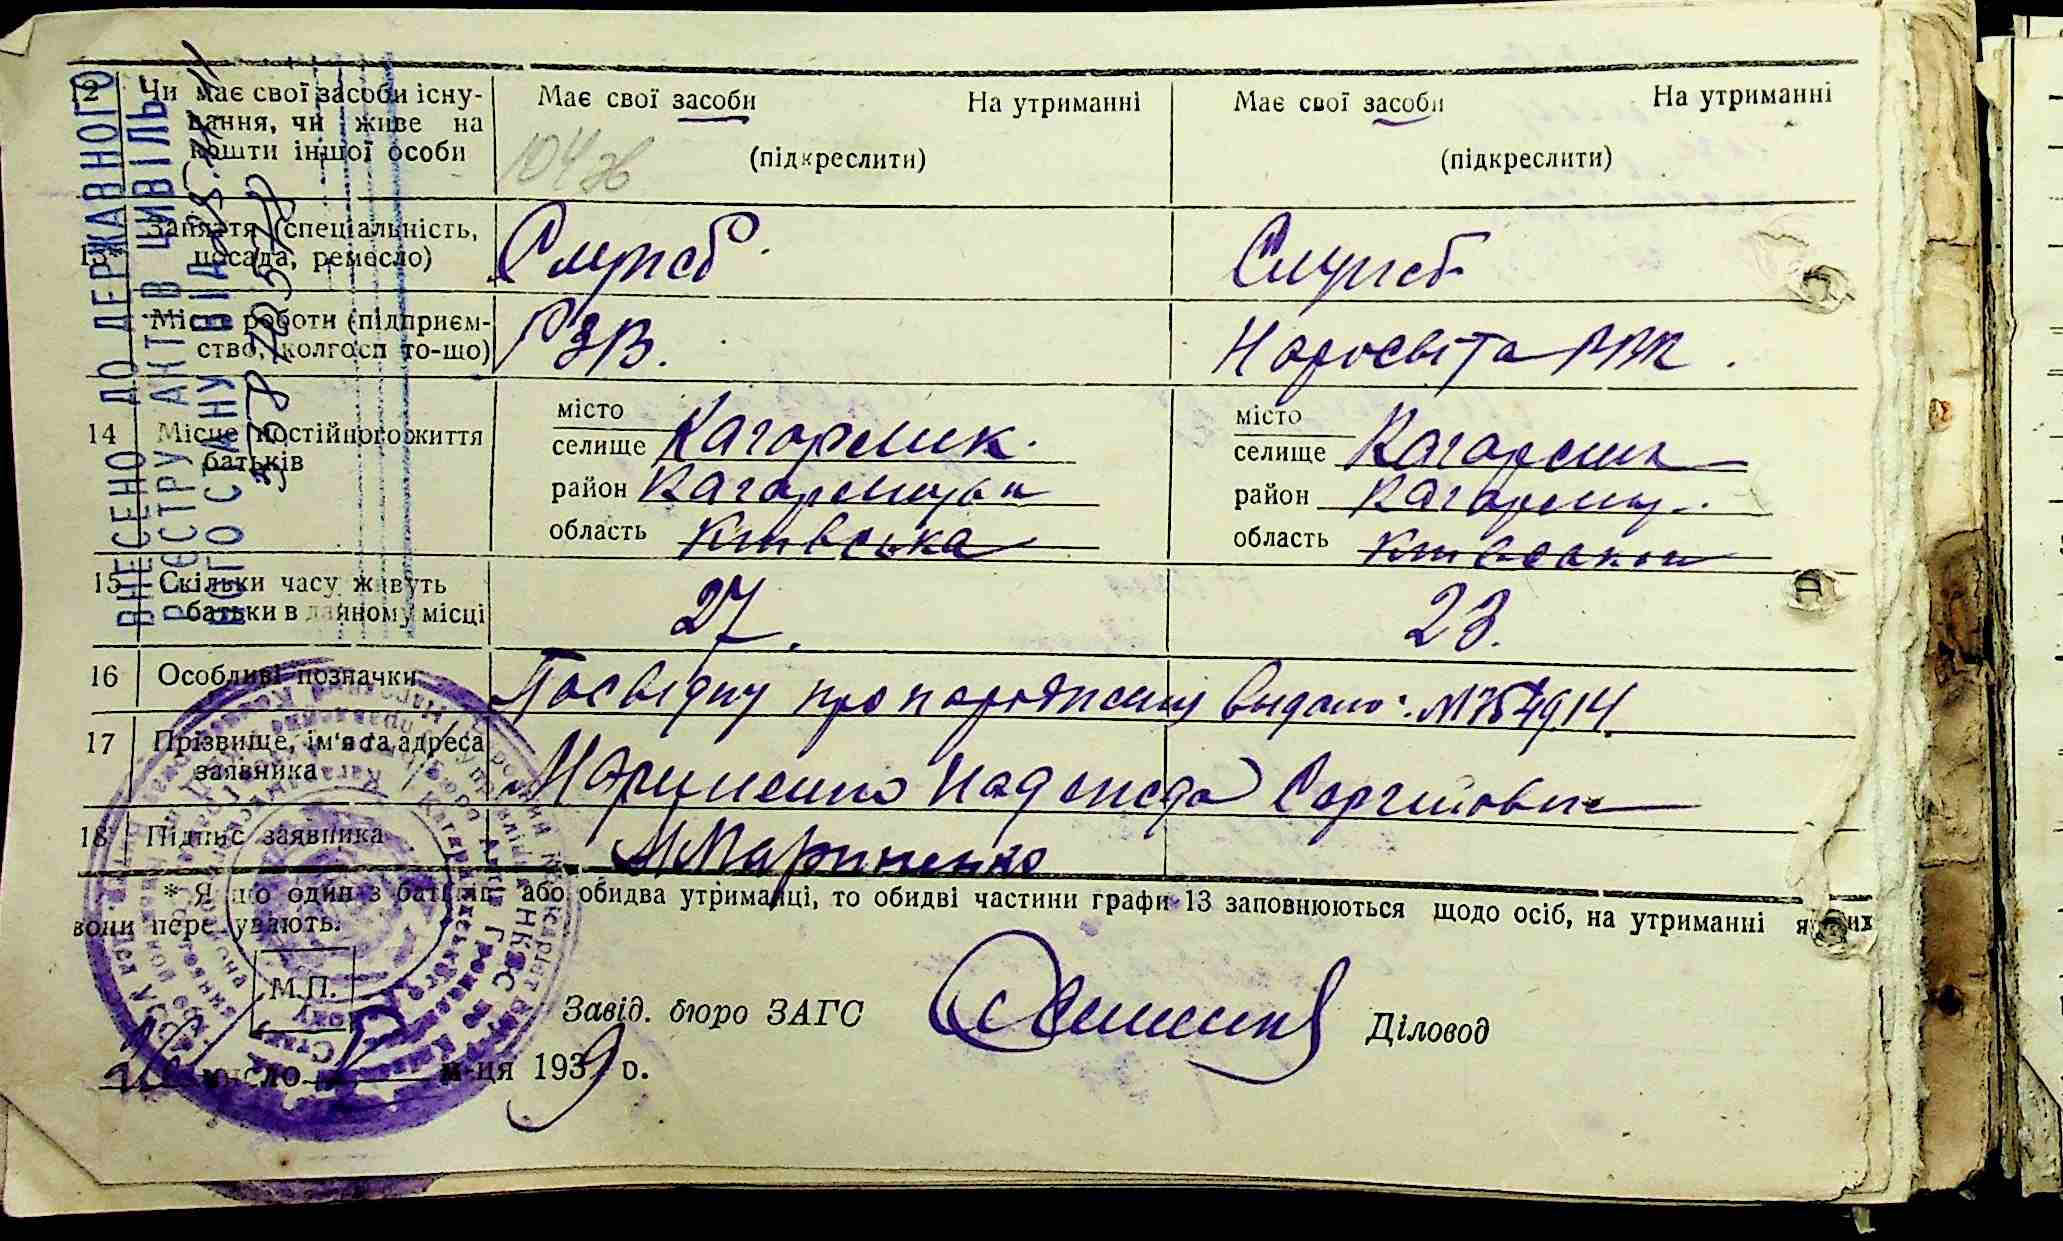 12 Чи має свої засоби існу- Має свої засоби На утриманні Має свої засоби На утриманні
вання, чи живе на
кошти іншої особи (підкреслити) (підкреслити)
104ж
13* Заняття (спеціальність, Служб. Служб
посада, ремесло)
Місце роботи (підприєм- РЗВ. Наросвіта РВК.
ство, колгосп то-що)
14 Місце постійного життя батьків
місто
селище Кагарлик. місто
селище Кагарлик
район Кагарлицьк район Кагарлиц.
область Київська область Київська
15 Скільки часу живуть 27. 23.
батьки в данному місці
16 Особливі позначки Посвідку про народження видано
17 Прізвище, ім'я та адреса Мариненко Надежда Сергіївна
заявника
18 Підпис заявника Мариненко
* Якщо один з батьків або обидва утриманці, то обидві частини графи 13 заповнюються щодо осіб, на утриманні яких
вони перебувають.
М.П.
Завід. бюро ЗАГС Діловод
число м-ця 1939 р.
ВНЕСЕНО ДО ДЕРЖАВНОГО
РЕЄСТРУ АКТІВ ЦИВІЛЬ
НОГО СТАНУ ВІД